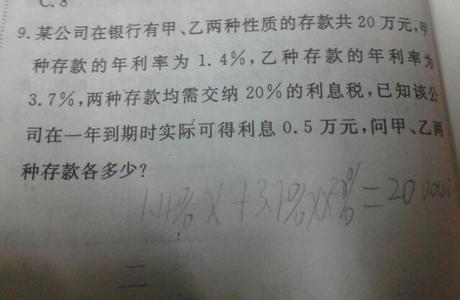 C. 8
9. 某公司在银行有甲、乙两种性质的存款共 20 万元,甲
种存款的年利率为 1.4%,乙种存款的年利率为
3.7%,两种存款均需交纳 20%的利息税,已知该公
司在一年到期时实际可得利息 0.5 万元,问甲、乙两
种存款各多少?
1.4% X + 3.7% X x 20% = 20000
二